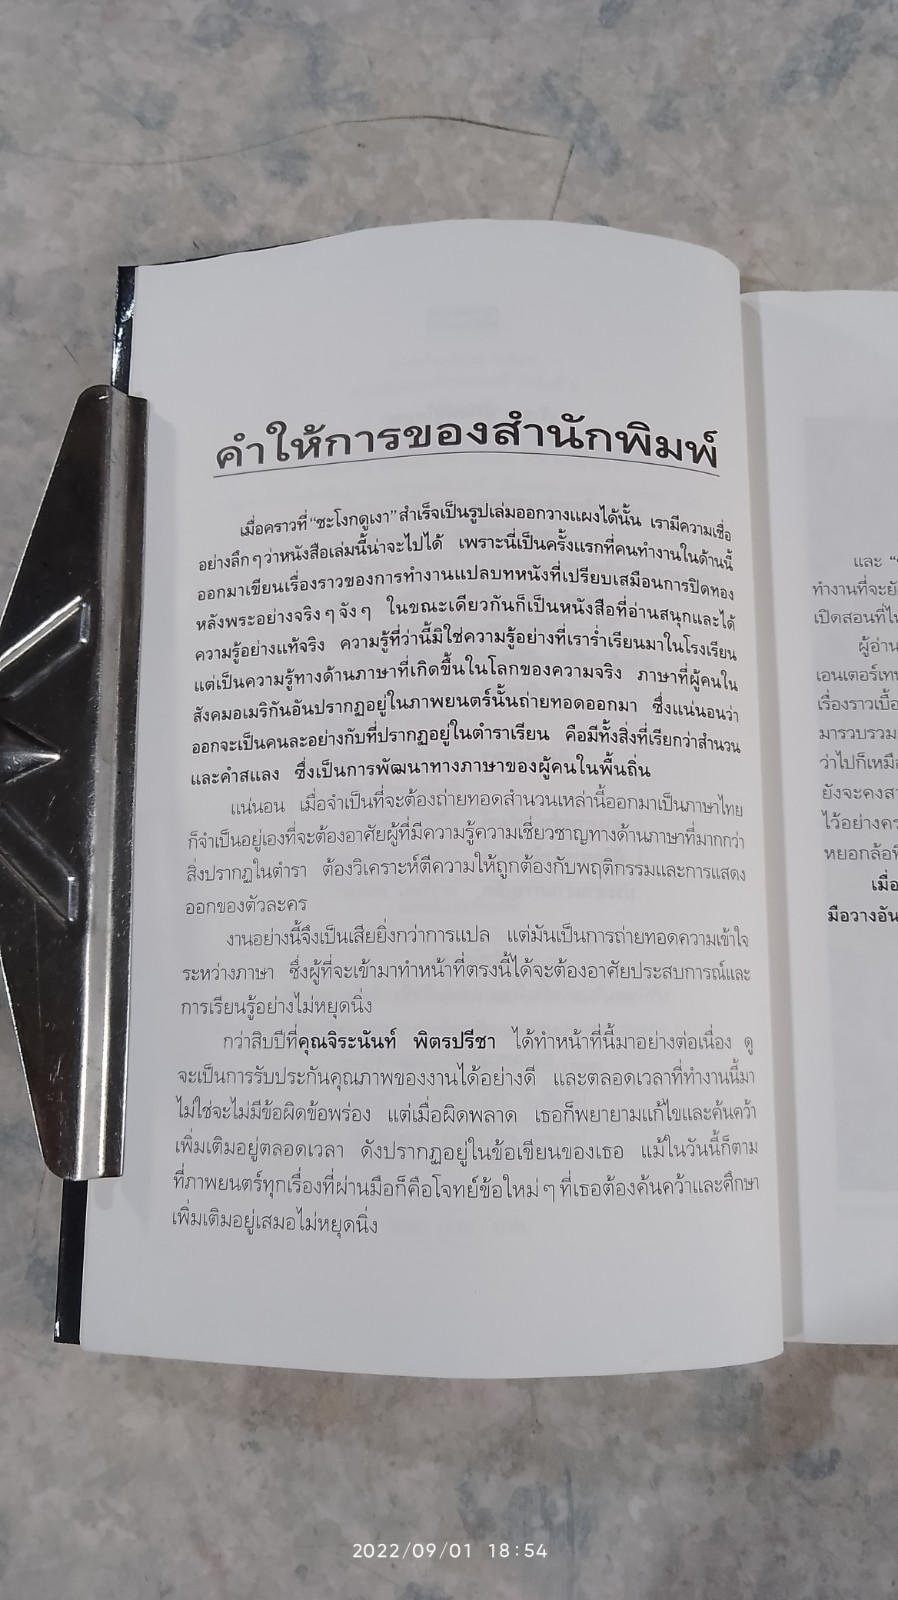 คำให้การของสำนักพิมพ์
เมื่อคราวที่ "ชะโงกดูเงา" สำเร็จเป็นรูปเล่มออกวางแผงได้นั้น เรามีความเชื่อ
อย่างลึก ๆ ว่าหนังสือเล่มนี้น่าจะไปได้ เพราะนี่เป็นครั้งแรกที่คนทำงานในด้านนี้
ออกมาเขียนเรื่องราวของการทำงานแปลบทหนังที่เปรียบเสมือนการปิดทอง
หลังพระอย่างจริง ๆ จัง ๆ ในขณะเดียวกันก็เป็นหนังสือที่อ่านสนุกและได้
ความรู้อย่างแท้จริง ความรู้ที่ว่านี้มิใช่ความรู้อย่างที่เราร่ำเรียนมาในโรงเรียน
แต่เป็นความรู้ทางด้านภาษาที่เกิดขึ้นในโลกของความจริง ภาษาที่ผู้คนใน
สังคมอเมริกันอันปรากฏอยู่ในภาพยนตร์นั้นถ่ายทอดออกมา ซึ่งแน่นอนว่า
ออกจะเป็นคนละอย่างกับที่ปรากฏอยู่ในตำราเรียน คือมีทั้งสิ่งที่เรียกว่าสำนวน
และคำสแลง ซึ่งเป็นการพัฒนาทางภาษาของผู้คนในพื้นถิ่น
แน่นอน เมื่อจำเป็นที่จะต้องถ่ายทอดสำนวนเหล่านี้ออกมาเป็นภาษาไทย
ก็จำเป็นอยู่เองที่จะต้องอาศัยผู้ที่มีความรู้ความเชี่ยวชาญทางด้านภาษาที่มากกว่า
สิ่งปรากฏในตำรา ต้องวิเคราะห์ตีความให้ถูกต้องกับพฤติกรรมและการแสดง
ออกของตัวละคร
งานอย่างนี้จึงเป็นเสียยิ่งกว่าการแปล แต่มันเป็นการถ่ายทอดความเข้าใจ
ระหว่างภาษา ซึ่งผู้ที่จะเข้ามาทำหน้าที่ตรงนี้ได้จะต้องอาศัยประสบการณ์และ
การเรียนรู้อย่างไม่หยุดนิ่ง
กว่าสิบปีที่คุณจิระนันท์ พิตรปรีชา ได้ทำหน้าที่นี้มาอย่างต่อเนื่อง ดู
จะเป็นการรับประกันคุณภาพของงานได้อย่างดี และตลอดเวลาที่ทำงานนี้มา
ไม่ใช่จะไม่มีข้อผิดข้อพร่อง แต่เมื่อผิดพลาด เธอก็พยายามแก้ไขและค้นคว้า
เพิ่มเติมอยู่ตลอดเวลา ดังปรากฏอยู่ในข้อเขียนของเธอ แม้ในวันนี้ก็ตาม
ที่ภาพยนตร์ทุกเรื่องที่ผ่านมือก็คือโจทย์ข้อใหม่ ๆ ที่เธอต้องค้นคว้าและศึกษา
เพิ่มเติมอยู่เสมอไม่หยุดนิ่ง
และ
ทำงานที่จะ
เปิดสอนที่
ผู้อ่าน
เอนเตอร์เท
เรื่องราวเบื้อ
มารวบรวม
ว่าไปก็เหมือ
ยังจะคง
ไว้อย่าง
หยอกล้อ
เมื่อ
มือวางอัน
2022/09/01 18:54